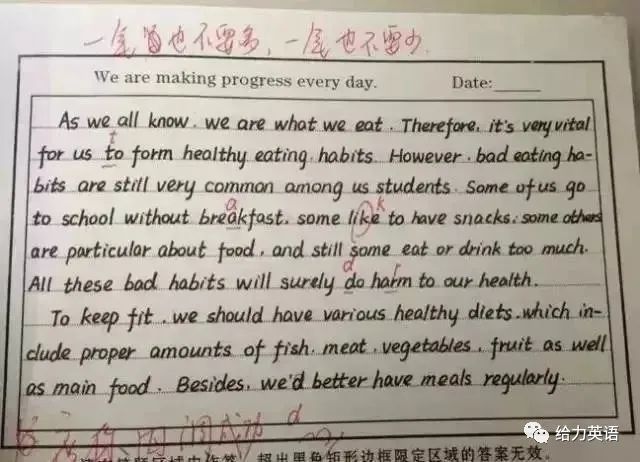 一尾也不要多，一尾也不要少.
We are making progress every day. Date:
As we all know, we are what we eat. Therefore, it's very vital
t
for us to form healthy eating habits. However, bad eating ha-
bits are still very common among us students. Some of us go
a k
to school without breakfast, some like to have snacks, some others
are particular about food, and still some eat or drink too much.
d r
All these bad habits will surely do harm to our health.
To keep fit, we should have various healthy diets, which in-
clude proper amounts of fish, meat, vegetables, fruit as well
as main food. Besides, we'd better have meals regularly.
成功 d
超出黑角矩形边框限定区域的答案无效。
给力英语